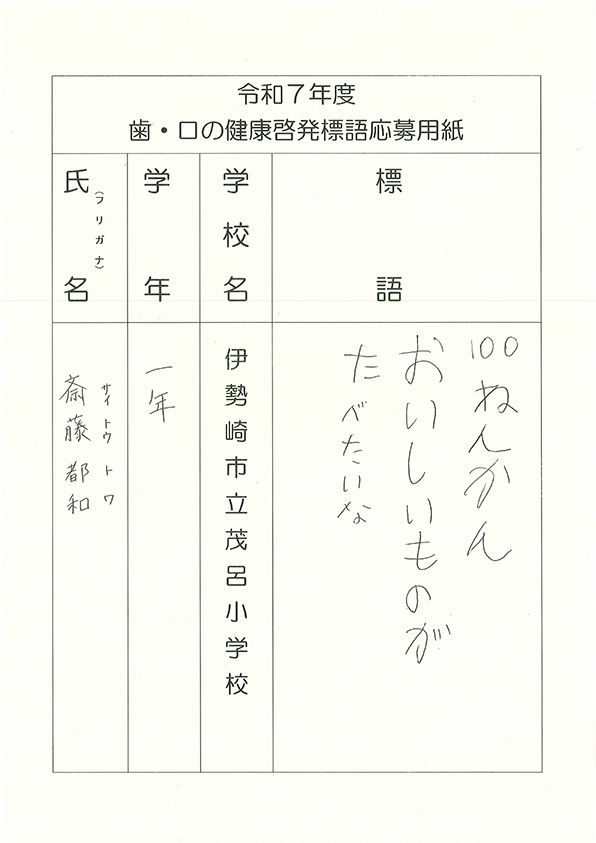 令和7年度
歯・口の健康啓発標語応募用紙
標語
100ねんかん
おいしいものが
たべたいな
学校名
伊勢崎市立茂呂小学校
学年
一年
氏名
(フリガナ)
斎藤 都和
サイトウ トワ